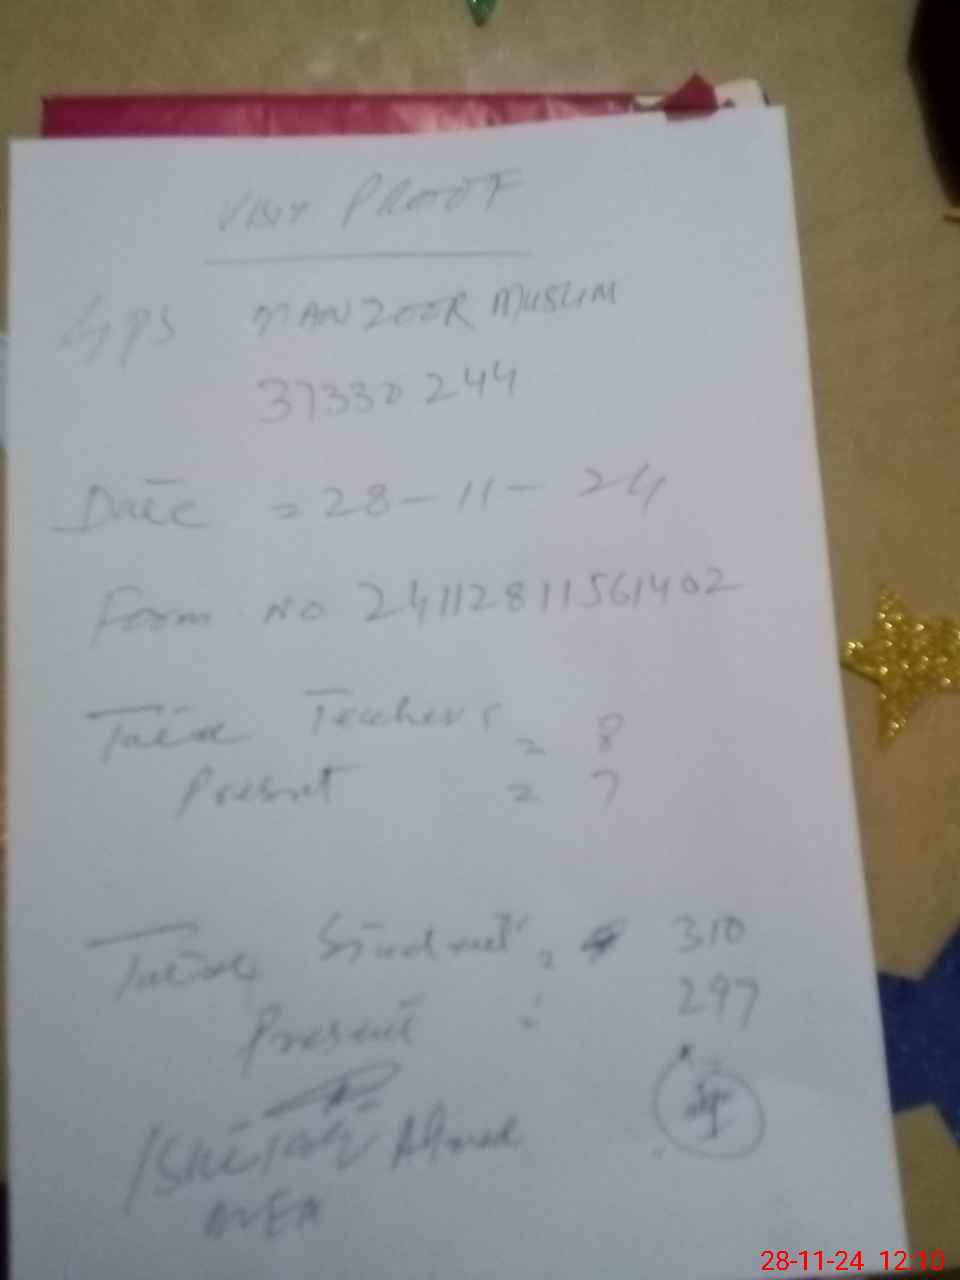 VISIT PROOF
GPS MANZOOR MUSLIM
37330244
Date = 28-11-24
Form No 24112811561402
Total Teachers = 8
Present = 7
Total Student = 310
Present : 297
Ishtiaq Ahmed
28-11-24 12:10